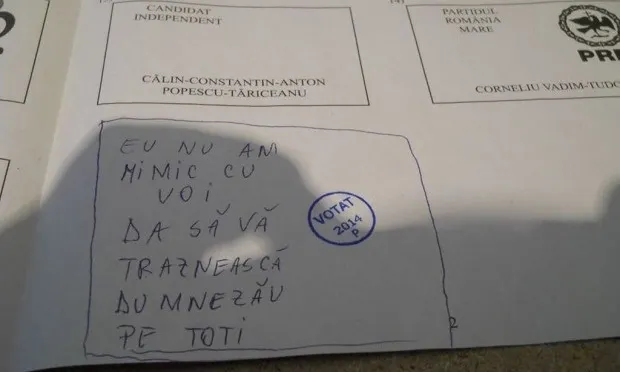 CANDIDAT
INDEPENDENT
CĂLIN-CONSTANTIN-ANTON
POPESCU-TĂRICEANU
PARTIDUL
ROMÂNIA
MARE
CORNELIU VADIM-TUDO
EU NU AM
MIMIC CU
VOI
DA SĂ VĂ
TRAZNEASCĂ
DUMNEZĂU
PE TOTI
VOTAT
2014
P